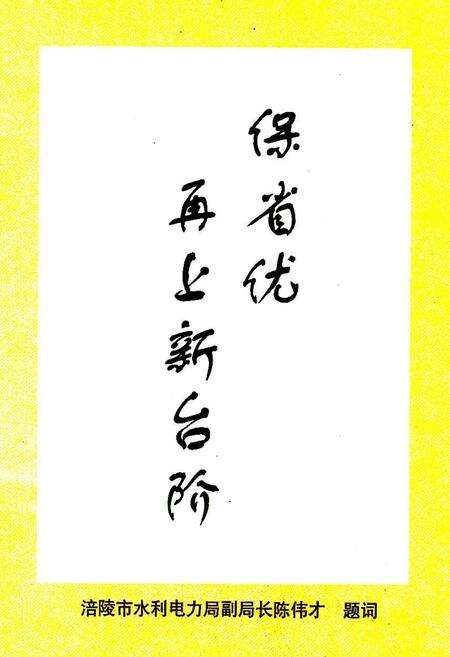 保省优
再上新台阶
涪陵市水利电力局副局长陈伟才　题词